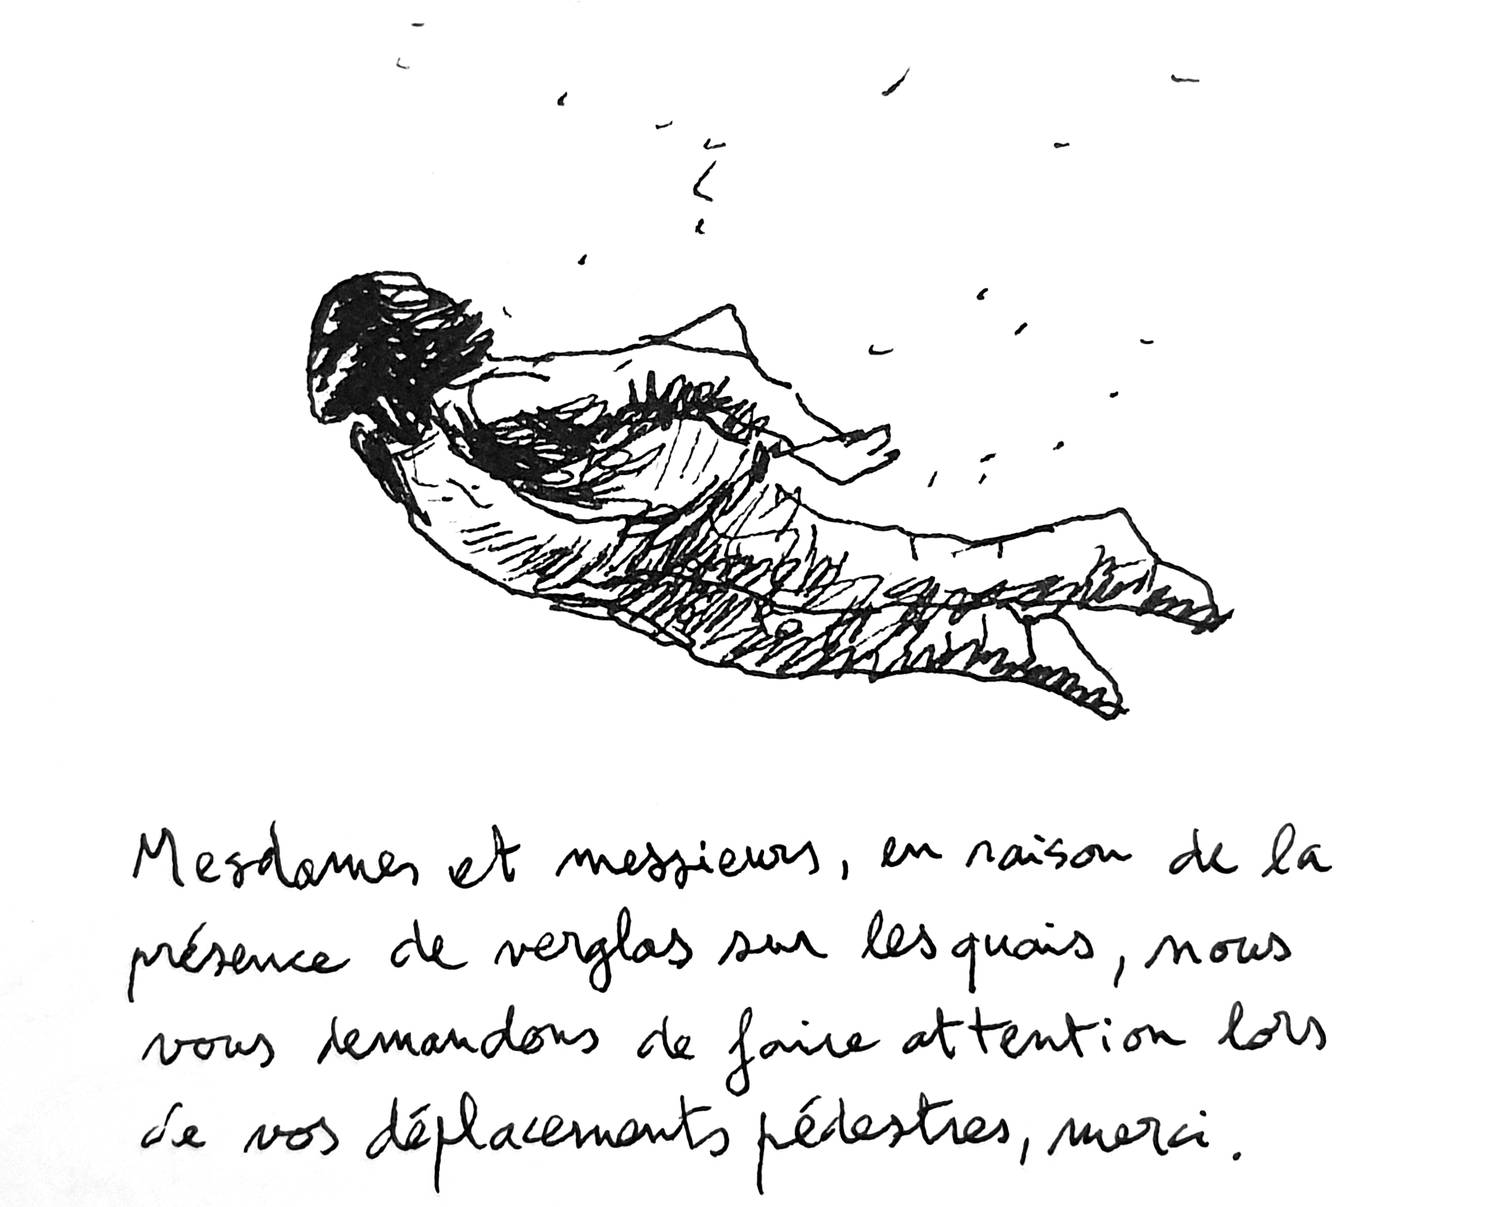 Mesdames et messieurs, en raison de la
présence de verglas sur les quais, nous
vous demandons de faire attention lors
de vos déplacements pédestres, merci.